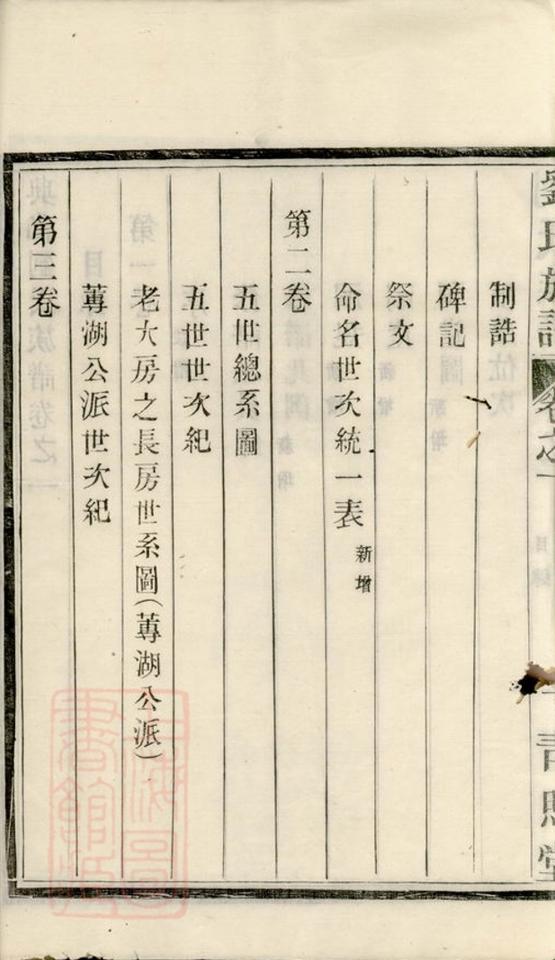 劉氏族譜 卷之一 目錄 一 青照堂
制誥
碑記
祭文
命名世次統一表 新增
第二卷
五世總系圖
五世世次紀
老大房之長房世系圖(蓴湖公派)
蓴湖公派世次紀
第三卷
上海圖書館藏